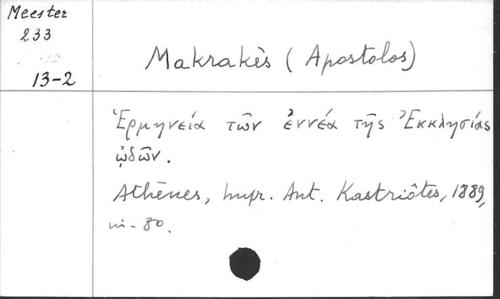 Meester
233
13-2
Makrakès (Apostolos)
Ἑρμηνεία τῶν ἐννέα τῆς Ἐκκλησίας
ᾠδῶν.
Athènes, Impr. Ant. Kastriôtes, 1889,
in-80.